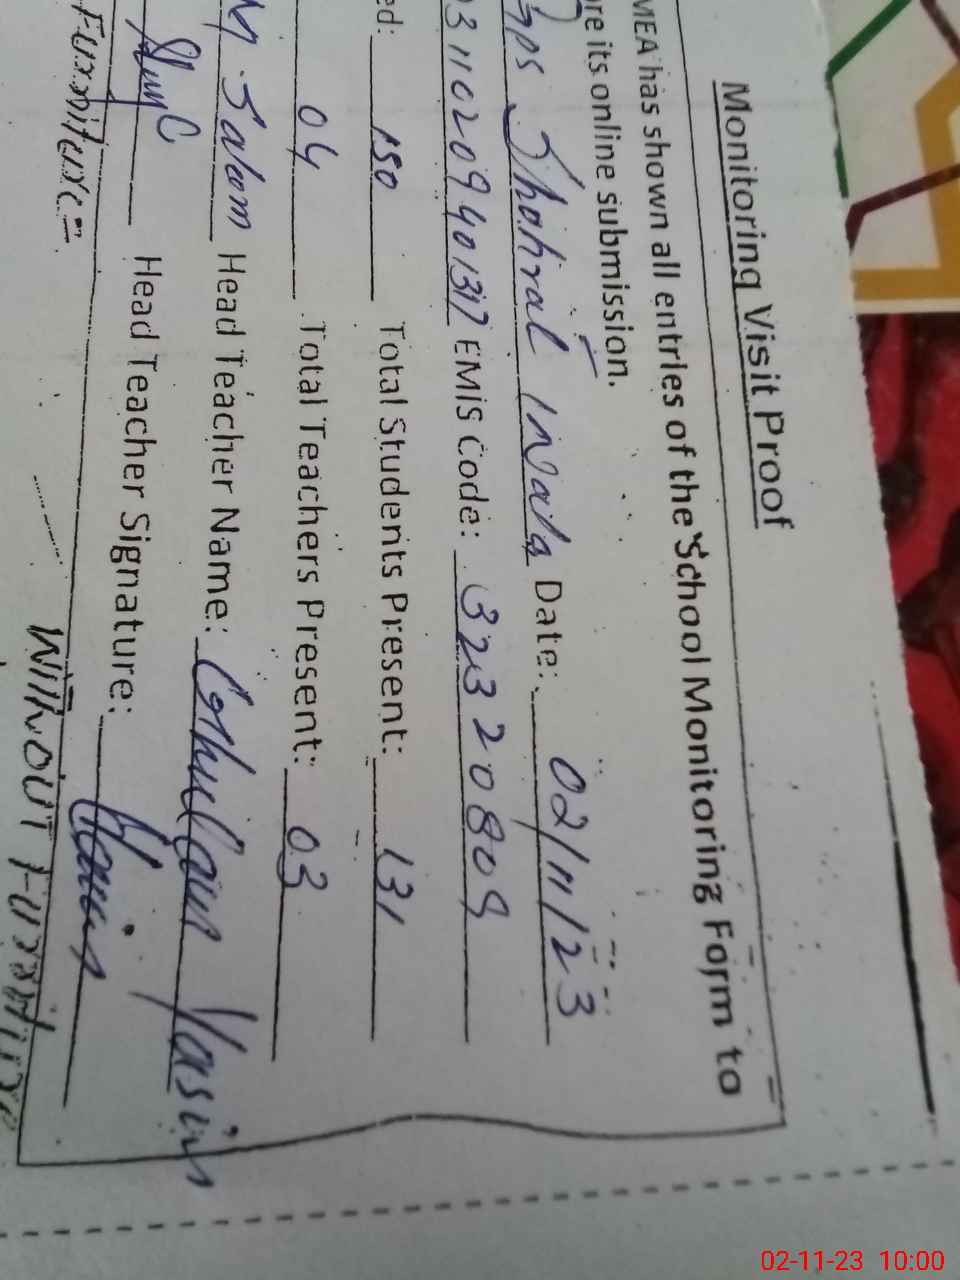 Monitoring Visit Proof
MEA has shown all entries of the School Monitoring Form to
re its online submission.
Gps Shahral Inala Date: 02/11/23
0311020940131? EMIS Code: 32320809
ed: 150 Total Students Present: 131
04 Total Teachers Present: 03
M. Saleem Head Teacher Name: Yasin
Head Teacher Signature:
Furniture =
Without Furniture
02-11-23 10:00